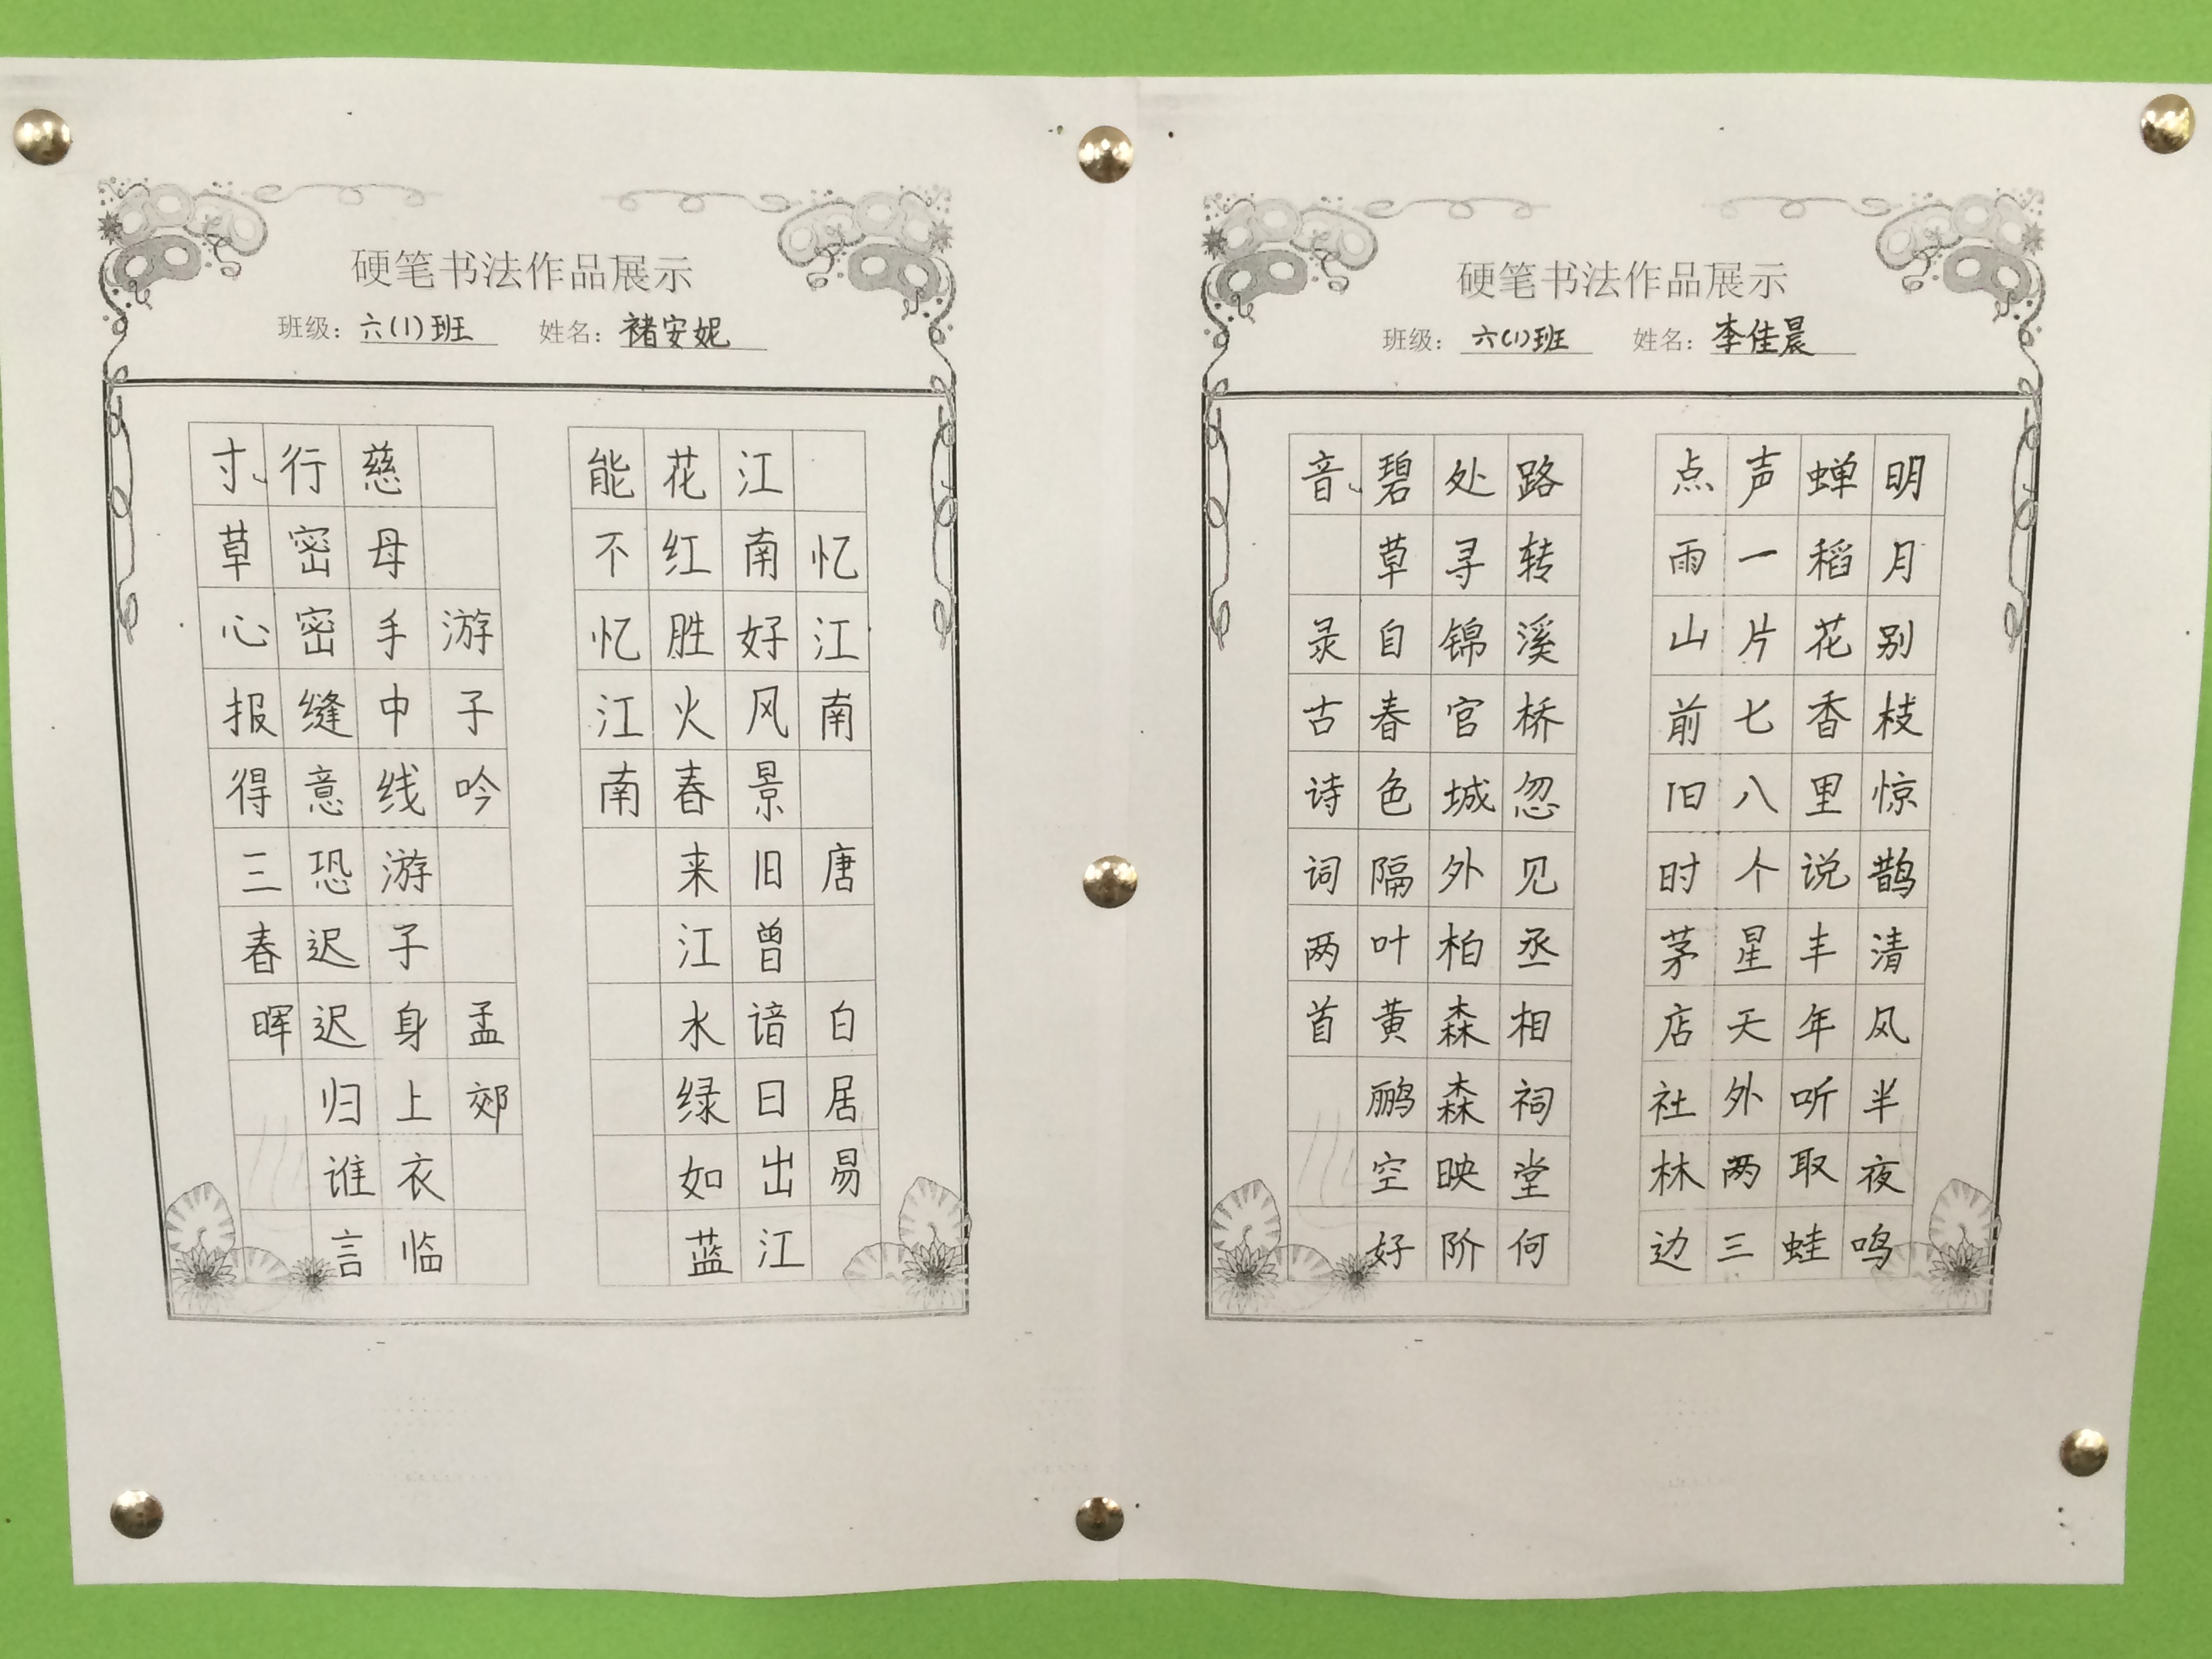 硬笔书法作品展示
班级：六(1)班 姓名：褚安妮
忆江南 唐 白居易
江南好风景旧曾谙日出江
花红胜火春来江水绿如蓝
能不忆江南
游子吟 孟郊
慈母手中线游子身上衣临
行密密缝意恐迟迟归谁言
寸草心报得三春晖
硬笔书法作品展示
班级：六(1)班 姓名：李佳晨
明月别枝惊鹊清风半夜鸣
蝉稻花香里说丰年听取蛙
声一片七八个星天外两三
点雨山前旧时茅店社林边
路转溪桥忽见丞相祠堂何
处寻锦官城外柏森森映阶
碧草自春色隔叶黄鹂空好
音 录古诗词两首